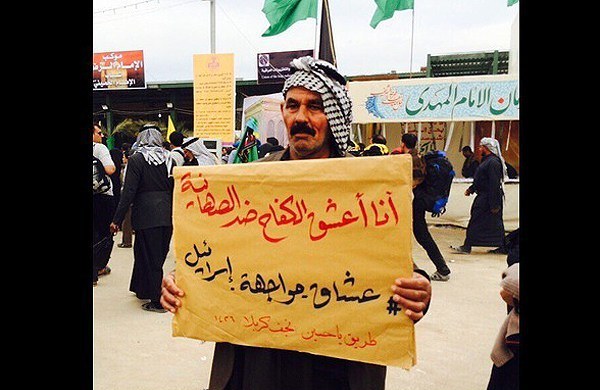 موكب
أنا أعشق الكفاح ضد الصهاينة
#عشاق_مواجهة_إسرائيل
طريق ياحسين نجف كربلا ١٤٣٦
الامام المهدي